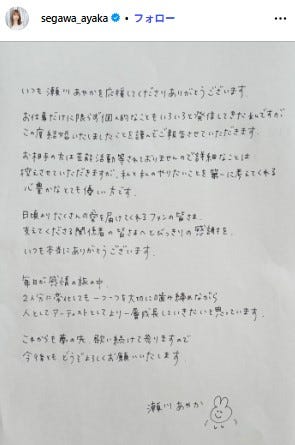 segawa_ayaka • フォロー
いつも瀬川あやかを応援してくださりありがとうございます。
お仕事だけに限らず個人的なこともいろいろと発信してきた私ですが、
この度結婚いたしましたことを謹んでご報告させていただきます。
お相手の方は芸能活動等されておりませんので詳細なことは
控えさせていただきますが、私と私のやりたいことを第一に考えてくれる
心豊かなとても優しい方です。
日頃よりたくさんの愛を届けてくれるファンの皆さま、
支えてくださる関係者の皆さまへとびっきりの感謝を。
いつも本当にありがとうございます。
毎日が感情の旅の中、
2人分に変化しても一つ一つを大切に噛み締めながら
人としてアーティストとしてより一層成長していきたいと思っています。
これからも夢の先、歌い続けて参りますので
今後ともどうぞよろしくお願いいたします。
瀬川あやか